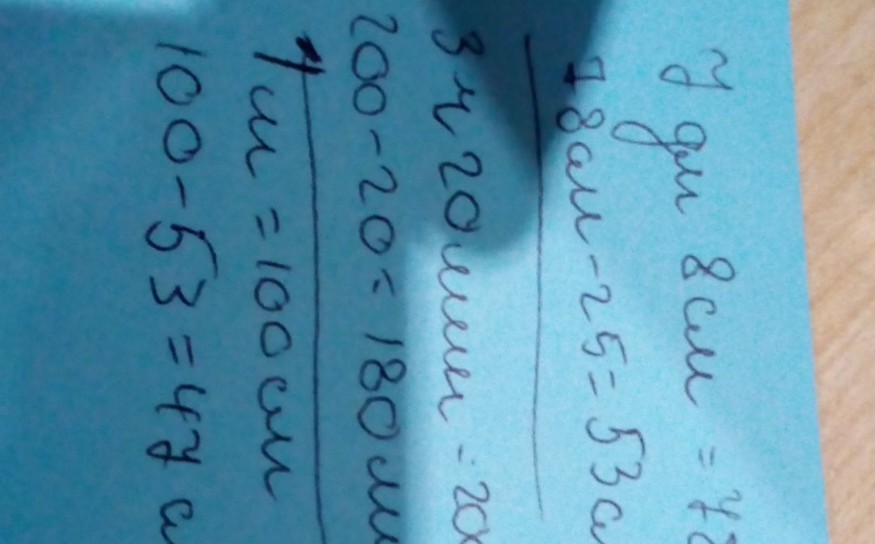 7 дм 8 см = 78
78 см - 25 = 53 с
3 ч 20 мин = 200
200 - 20 = 180 ми
1 м = 100 см
100 - 53 = 47 с